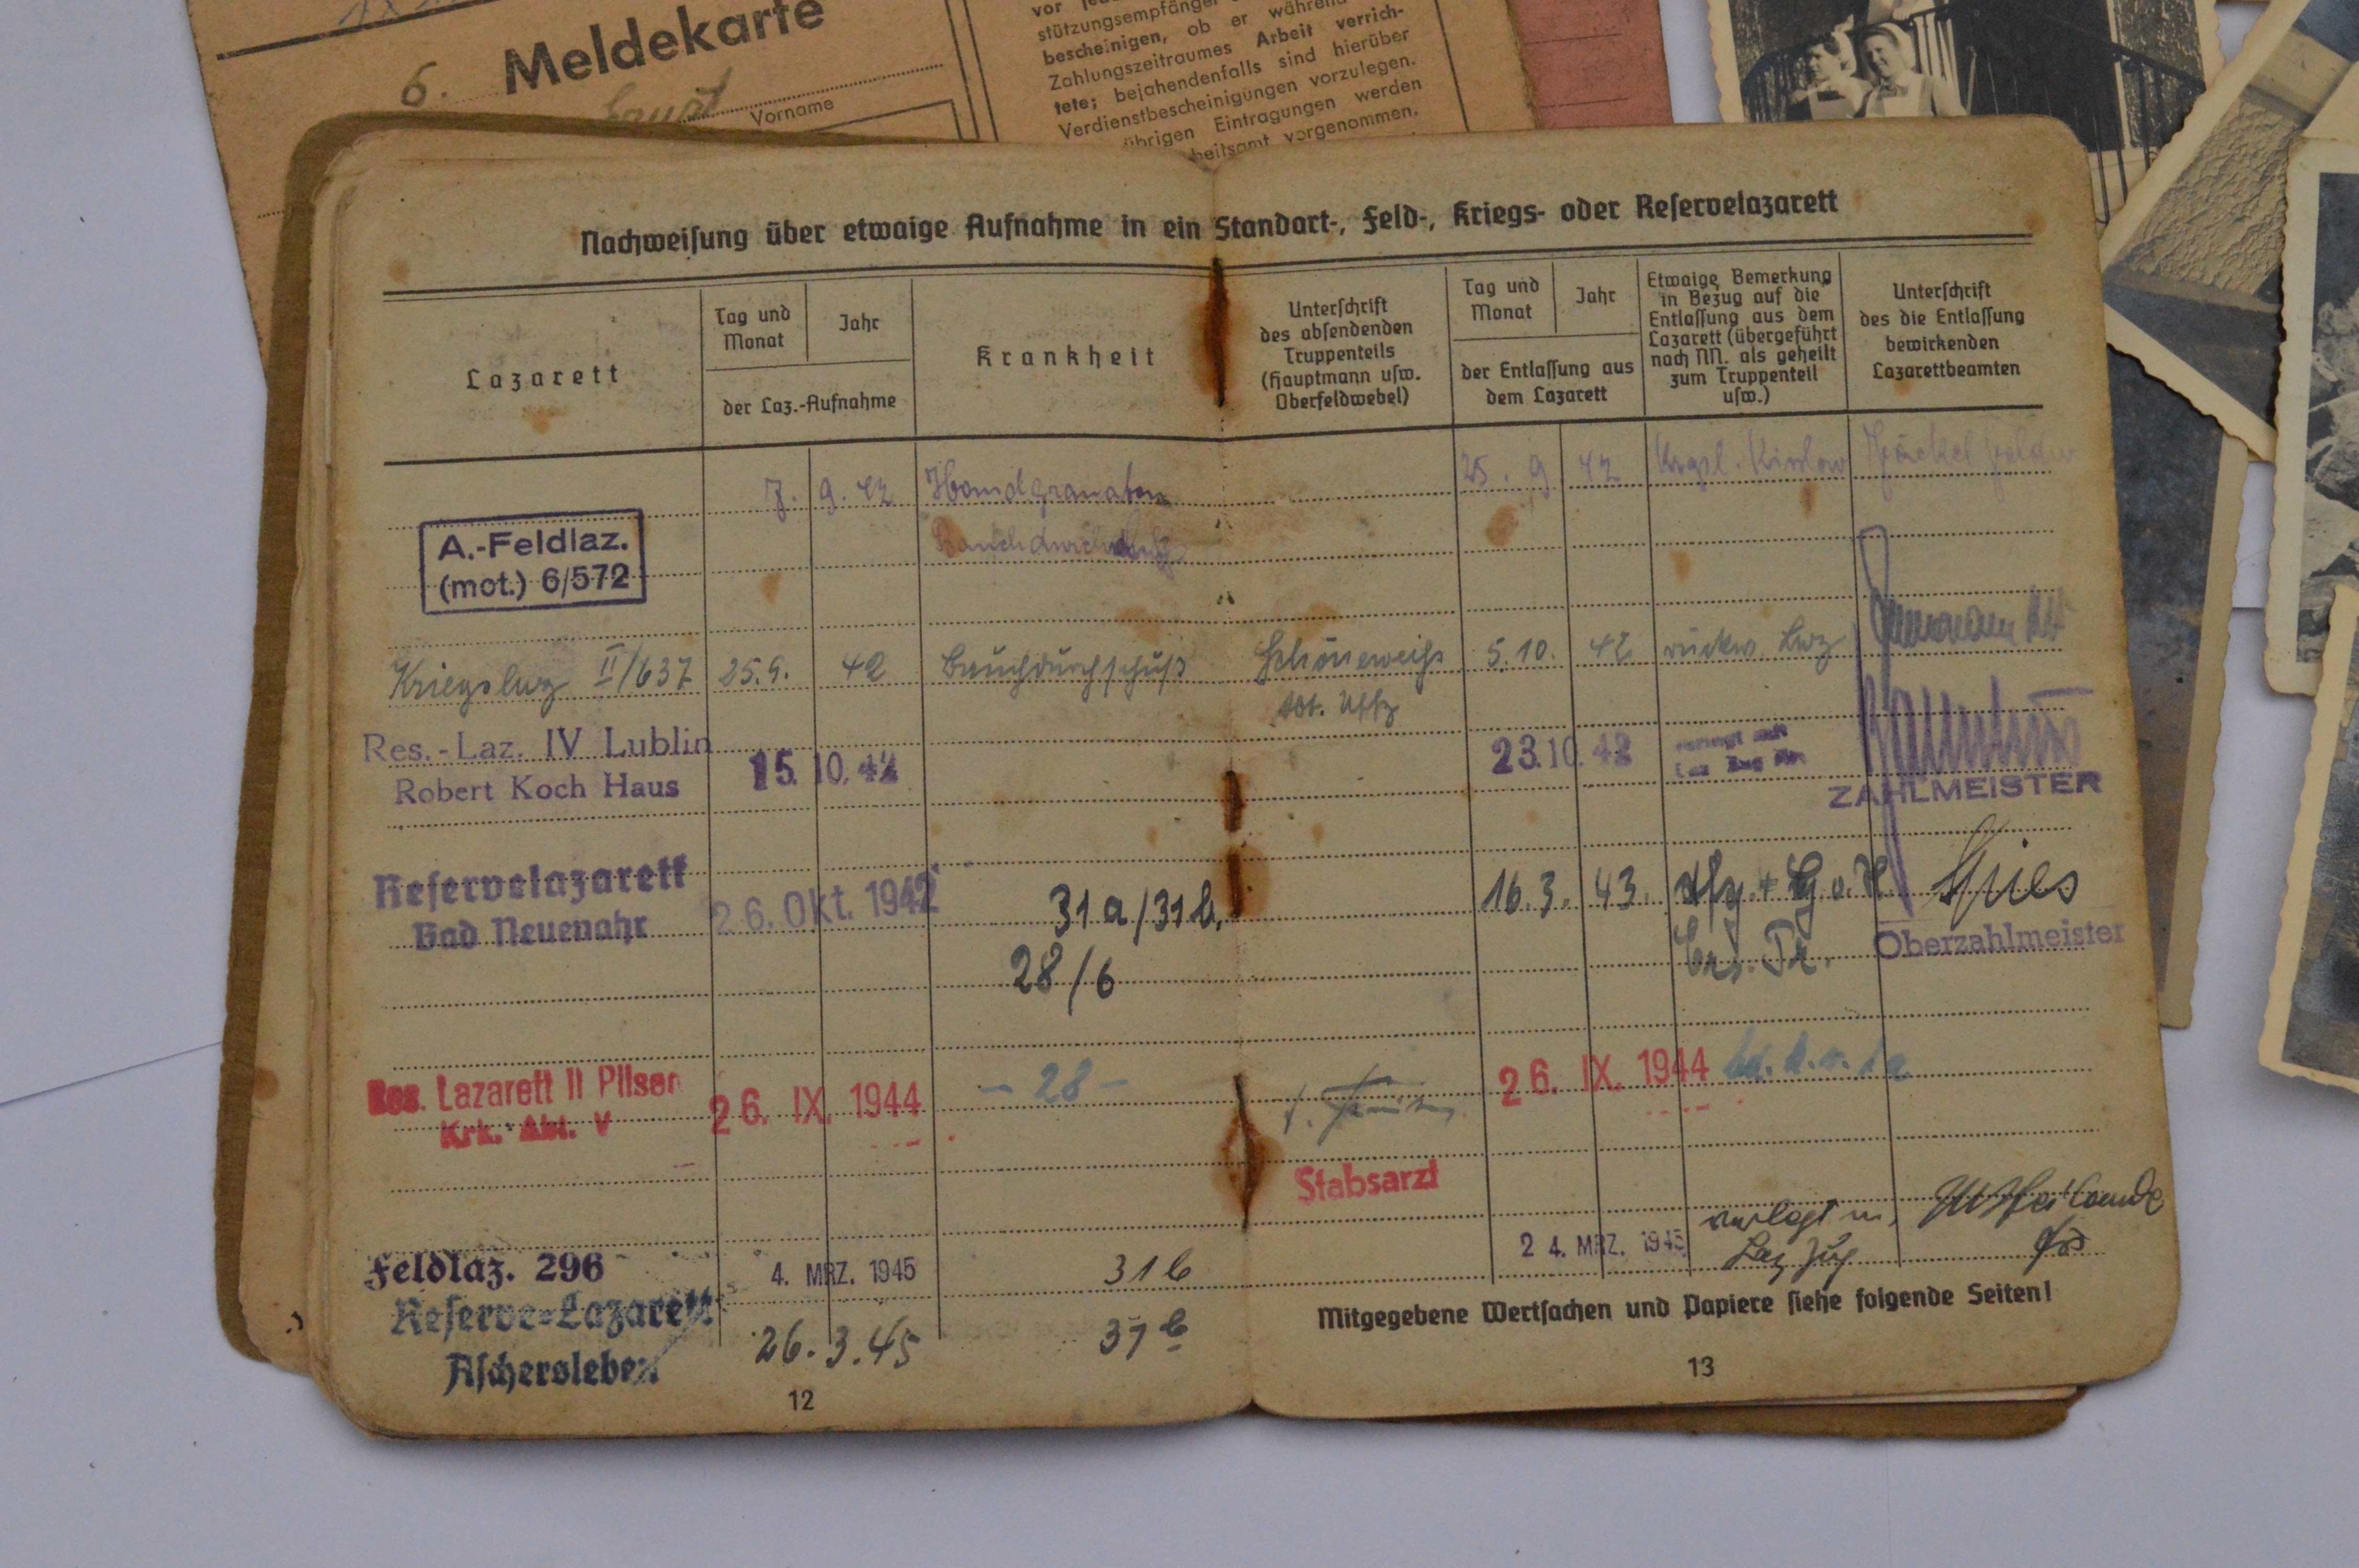 6. Meldekarte
Ernst
Vorname
stützungsempfänger
bescheinigen, ob er während
Zahlungszeitraumes Arbeit verrich-
tete; bejahendenfalls sind hierüber
Verdienstbescheinigungen vorzulegen.
übrigen Eintragungen werden
vorgenommen.
Nachweisung über etwaige Aufnahme in ein Standort-, Feld-, Kriegs- oder Reservelazarett
Lazarett
Tag und
Monat
Jahr
der Laz.-Aufnahme
Krankheit
Unterschrift
des absendenden
Truppenteils
(Hauptmann usw.
Oberfeldwebel)
Tag und
Monat
Jahr
der Entlassung aus
dem Lazarett
Etwaige Bemerkung
in Bezug auf die
Entlassung aus dem
Lazarett (übergeführt
nach NN. als geheilt
zum Truppenteil
usw.)
Unterschrift
des die Entlassung
bewirkenden
Lazarettbeamten
7. 9. 42 Handgranaten 25. 9 42 Krgsl.
A.-Feldlaz.
(mot.) 6/572
Kriegslaz II/637 25.9. 42 Bauchdurchschuß Schöneweiß 5.10. 42 rückw. Laz
Uffz
Res.-Laz. IV Lublin
Robert Koch Haus
15. 10. 42 23. 10. 42
ZAHLMEISTER
Reservelazarett
Bad Neuenahr
26. Okt. 1942 31a/31b. 16.3. 43. Spies
28/6 Ers. Tr. Oberzahlmeister
Res. Lazarett II Pilsen
Krk. Abt. V
26. IX. 1944 - 28 - 26. IX. 1944
Stabsarzt
Feldlaz. 296 4. MRZ. 1945 31b 24. MRZ. 1945 verlegt m.
Laz Zug
Reserve-Lazarett
Aschersleben
26. 3. 45 31b
Mitgegebene Wertsachen und Papiere siehe folgende Seiten!
12
13